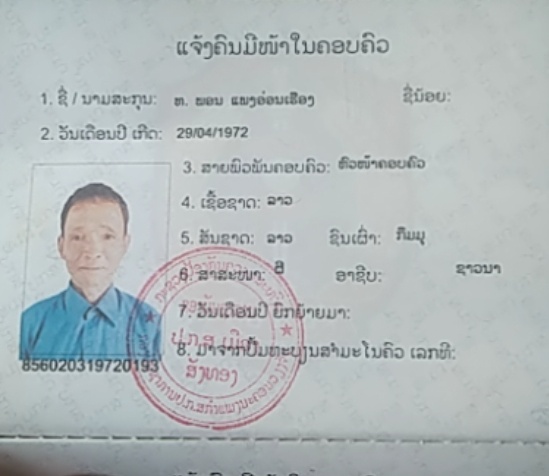 ແຈ້ງຄົນມີໜ້າໃນຄອບຄົວ
1. ຊື່ / ນາມສະກຸນ: ທ. ພອນ ແພງອ່ອນເຮືອງ ຊື່ນ້ອຍ:
2. ວັນເດືອນປີ ເກີດ: 29/04/1972
3. ສາຍພົວພັນຄອບຄົວ: ຫົວໜ້າຄອບຄົວ
4. ເຊື້ອຊາດ: ລາວ
5. ສັນຊາດ: ລາວ ຊົນເຜົ່າ: ກຶມມຸ
6. ສາສະໜາ: ຜີ ອາຊີບ: ຊາວນາ
7. ວັນເດືອນປີ ຍົກຍ້າຍມາ:
8. ມາຈາກປຶ້ມທະບຽນສຳມະໂນຄົວ ເລກທີ:
856020319720193
ປ.ກ.ສ ເມືອງ
ສັງທອງ